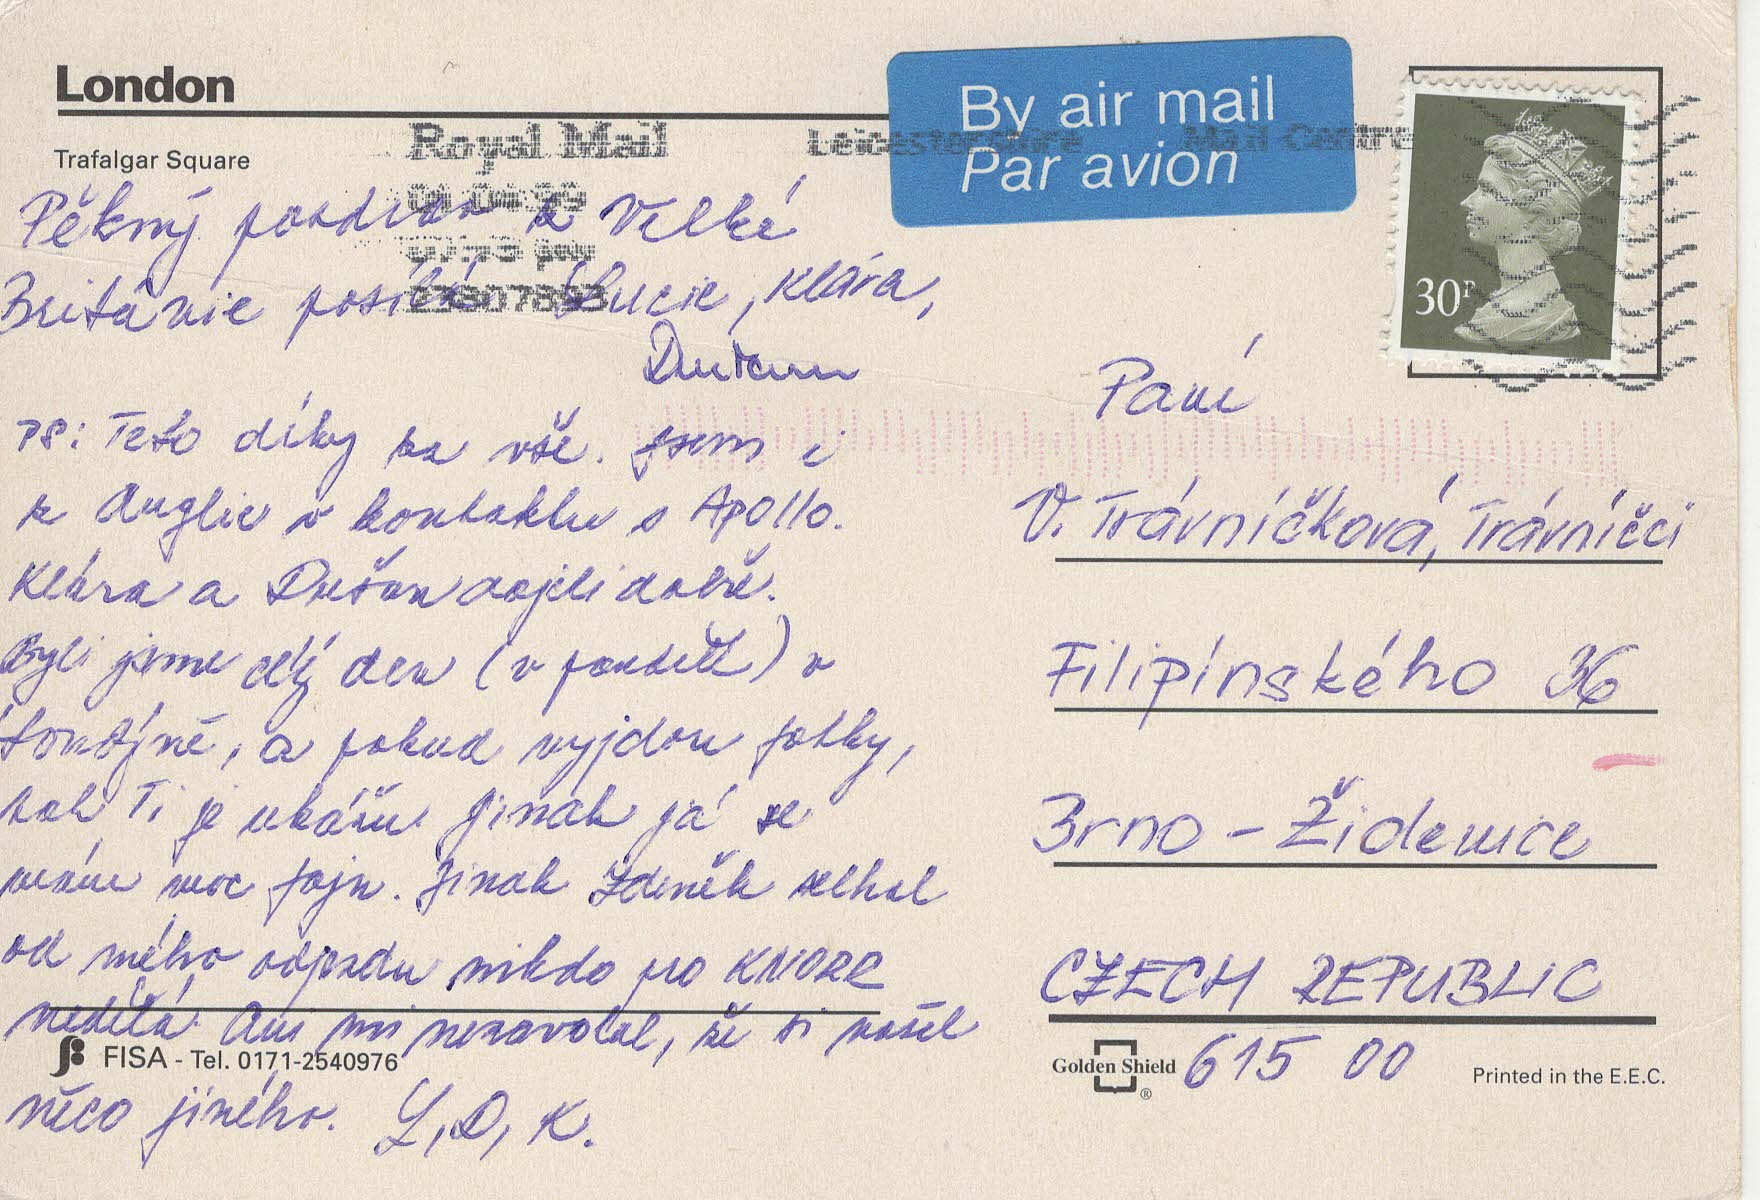 London
Trafalgar Square
By air mail
Par avion
Royal Mail
Leicestershire
Mail Centre
30P
Pěkný pozdrav z Velké
Británie posílá Lucie, Klára,
Dušan
PS: Teto díky za vše. Jsem i
z Anglie v kontaktu s Apollo.
Klára a Dušan dojeli dobře.
Byli jsme celý den (v pondělí) v
Londýně, a pokud vyjdou fotky,
tak Ti je ukážu. Jinak já se
mám moc fajn. Jinak Zdeněk selhal
od mého odjezdu nikdo pro KNORR
nedělá. Ani mi nezavolal, že si našel
něco jiného. L, D, K.
FISA - Tel. 0171-2540976
Paní
V. Trávníčková, Trávníčci
Filipínského 36
Brno - Židenice
CZECH REPUBLIC
Golden Shield
®
615 00
Printed in the E.E.C.